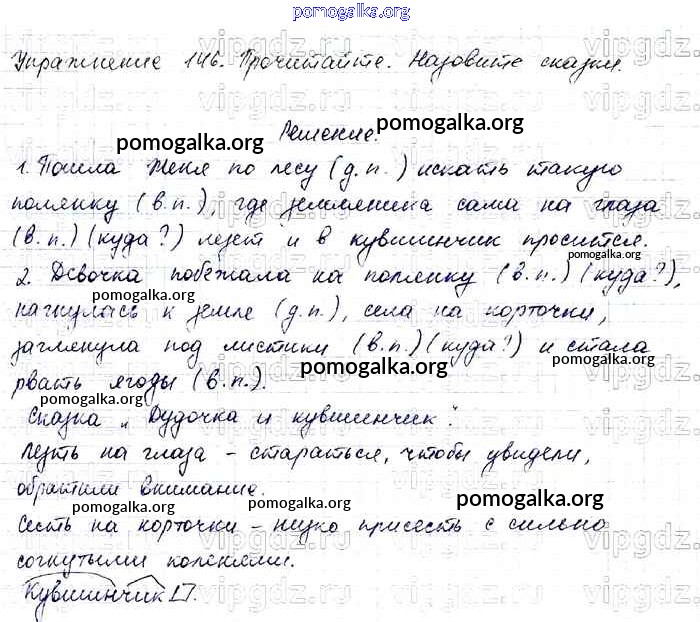 pomogalka.org
Упражнение 146. Прочитайте. Назовите сказки.
Решение.
pomogalka.org
pomogalka.org
1. Пошла Женя по лесу (д.п.) искать такую
полянку (в.п.), где земляника сама на глаза
(в.п.) (куда?) лезет и в кувшинчик просится.
pomogalka.org
2. Девочка побежала на полянку (в.п.) (куда?),
pomogalka.org
pomogalka.org
нагнулась к земле (д.п.), села на корточки,
заглянула под листики (в.п.) (куда?) и стала
pomogalka.org
pomogalka.org
рвать ягоды (в.п.).
Сказка „Дудочка и кувшинчик".
pomogalka.org
Лезть на глаза – стараться, чтобы увидели,
обратили внимание.
pomogalka.org
pomogalka.org
Сесть на корточки – низко присесть с сильно
согнутыми коленями.
Кувшинчик
vipgdz.com